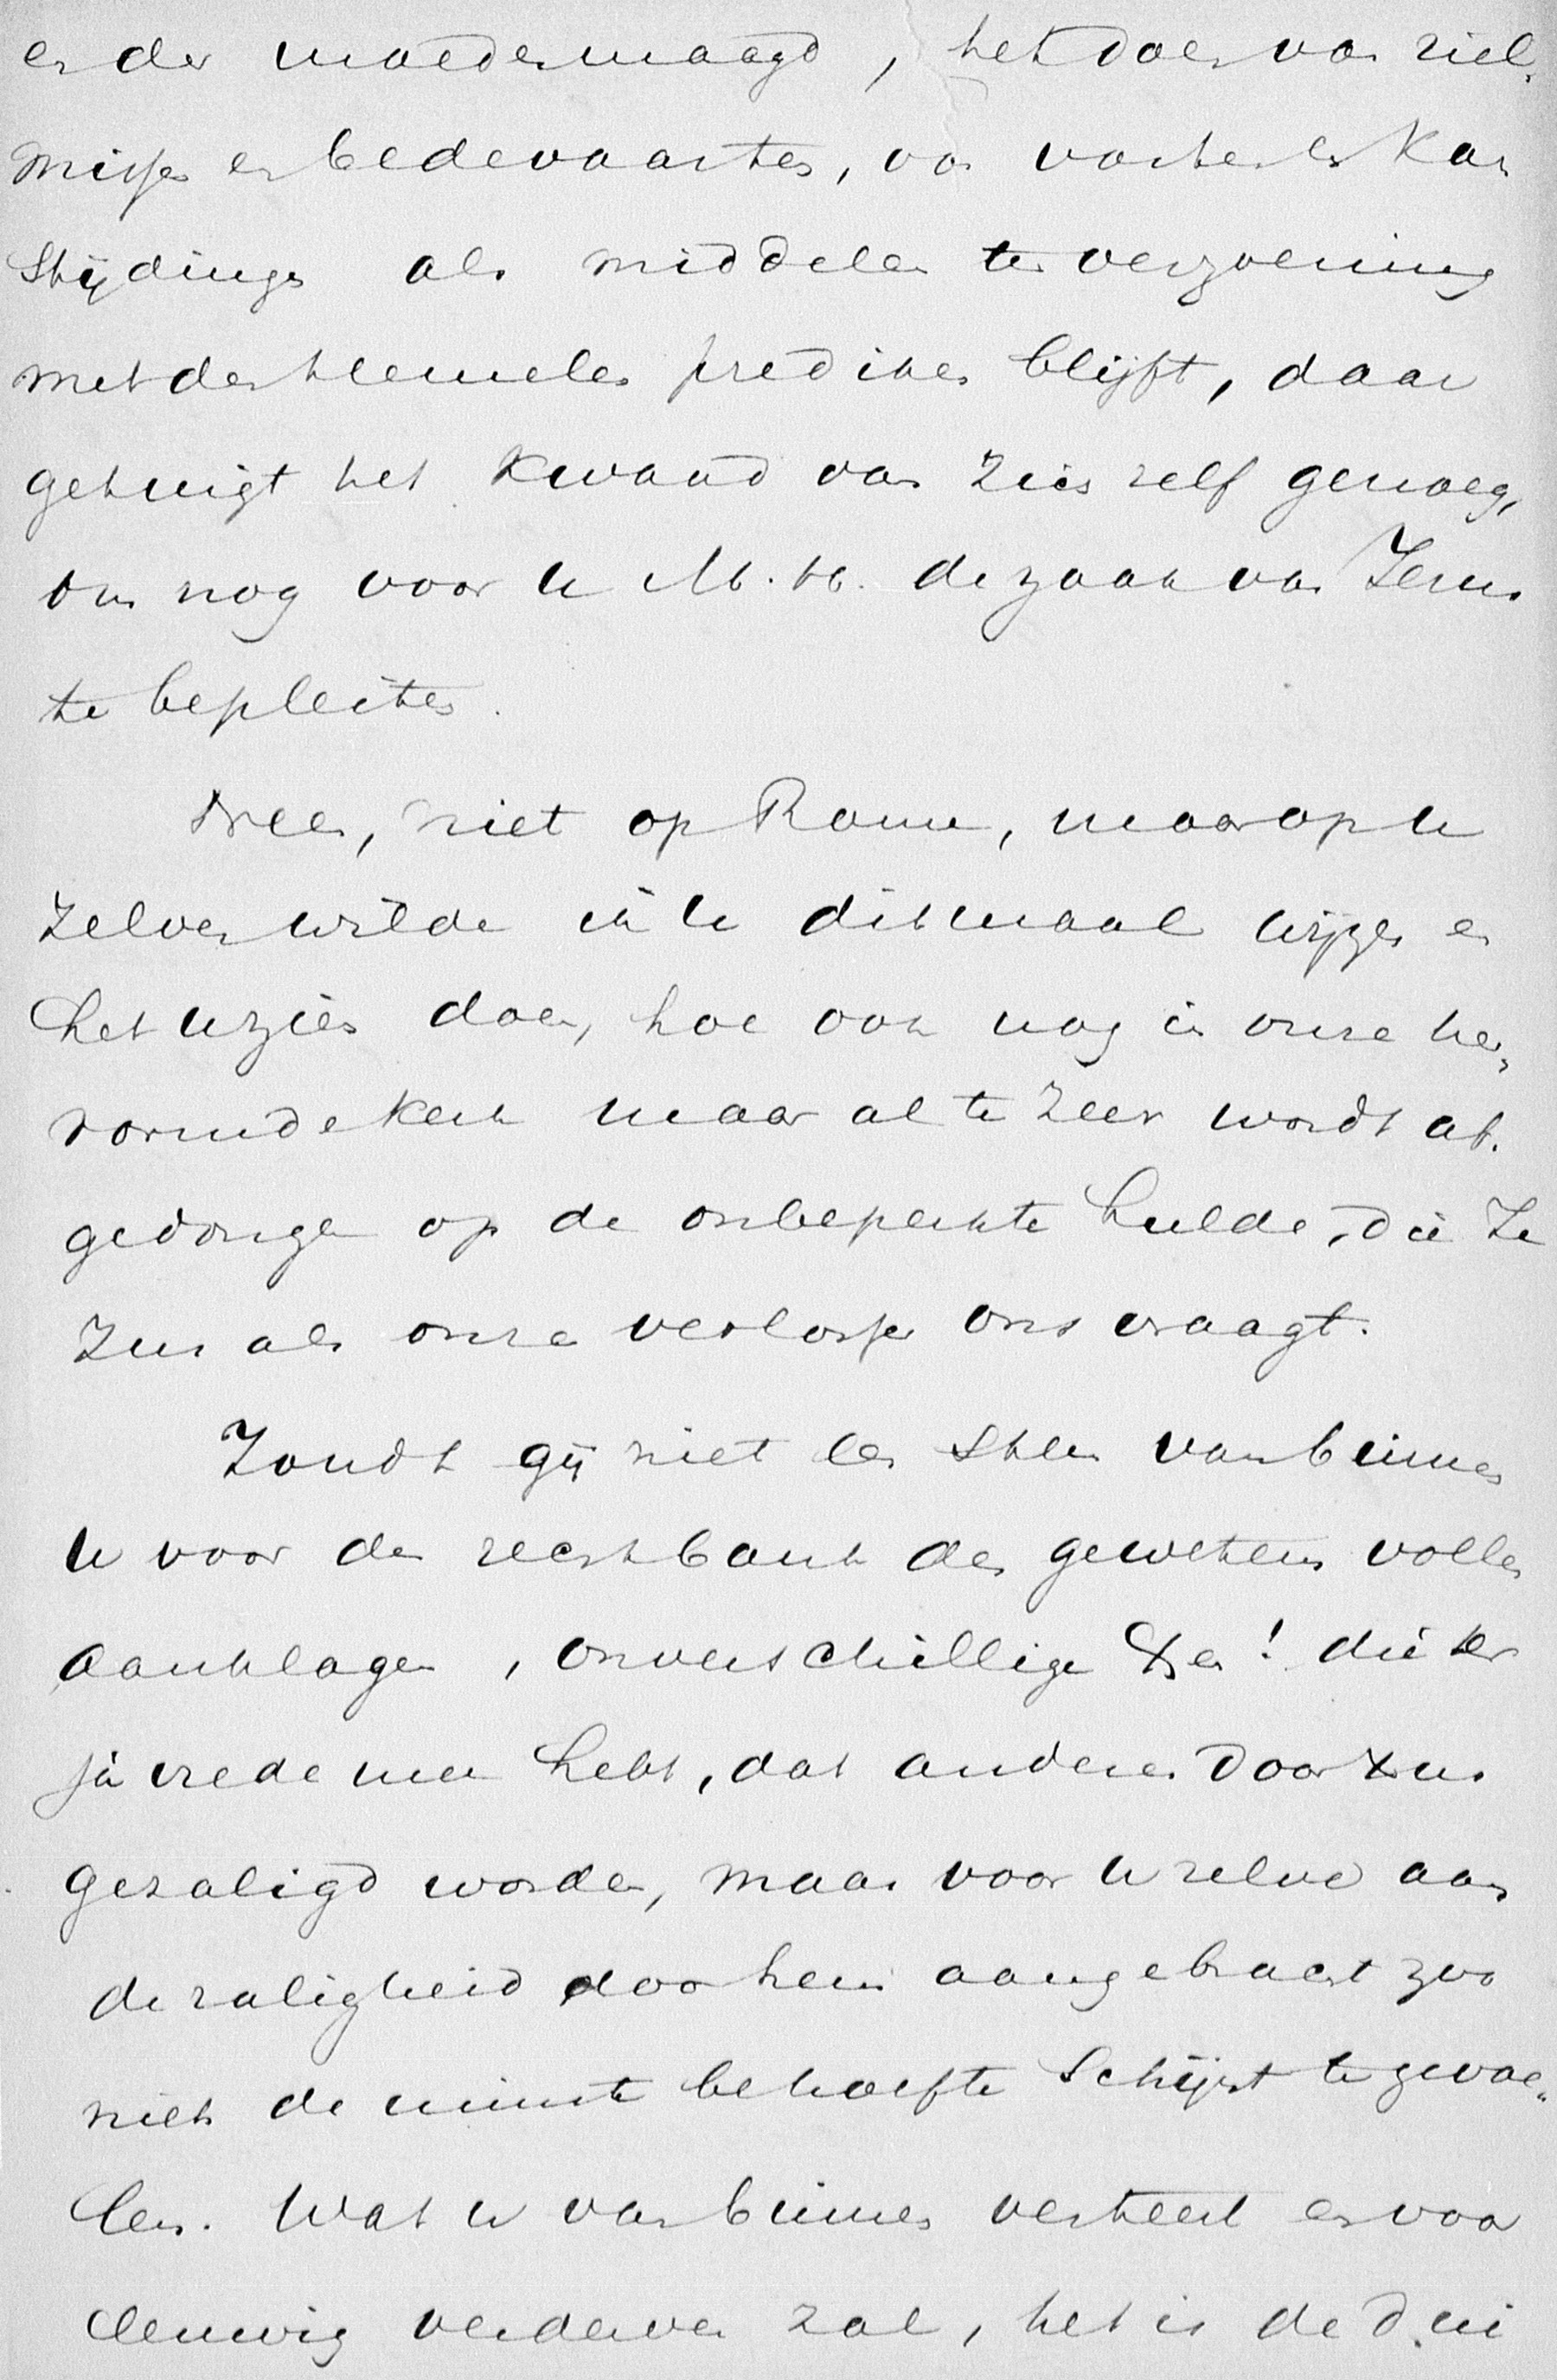 en der moedermaagd, het doen van ziel-
missen en bedevaarten, van vasten en kas
tijdingen als middelen ter verzoening
met den hemelen prediken blijft, daar
getuigt het kwaad van zich zelf genoeg,
om nog voor u M. H. de zaak van Jezus
te bepleiten.
Neen, niet op Rome, maar op u
zelven wilde ik u ditmaal wijzen en
het u zien doen, hoe ook nog in onze her-
vormde kerk maar al te zeer wordt af-
gedongen op de onbeperkte hulde, die Je
zus als onze verlosser ons vraagt.
Zoudt gij niet een stem van binnen
u voor de rechtbank des gewetens vollen
aanklagen, onverschilligen! die er
ja vrede mee hebt, dat anderen door Jezus
gezaligd worden, maar voor u zelve aan
de zaligheid door hem aangebracht zoo
niet de minste behoefte schijnt te gevoe-
len. Wat u van binnen verteert en voor
eeuwig verderven zal, het is de dui